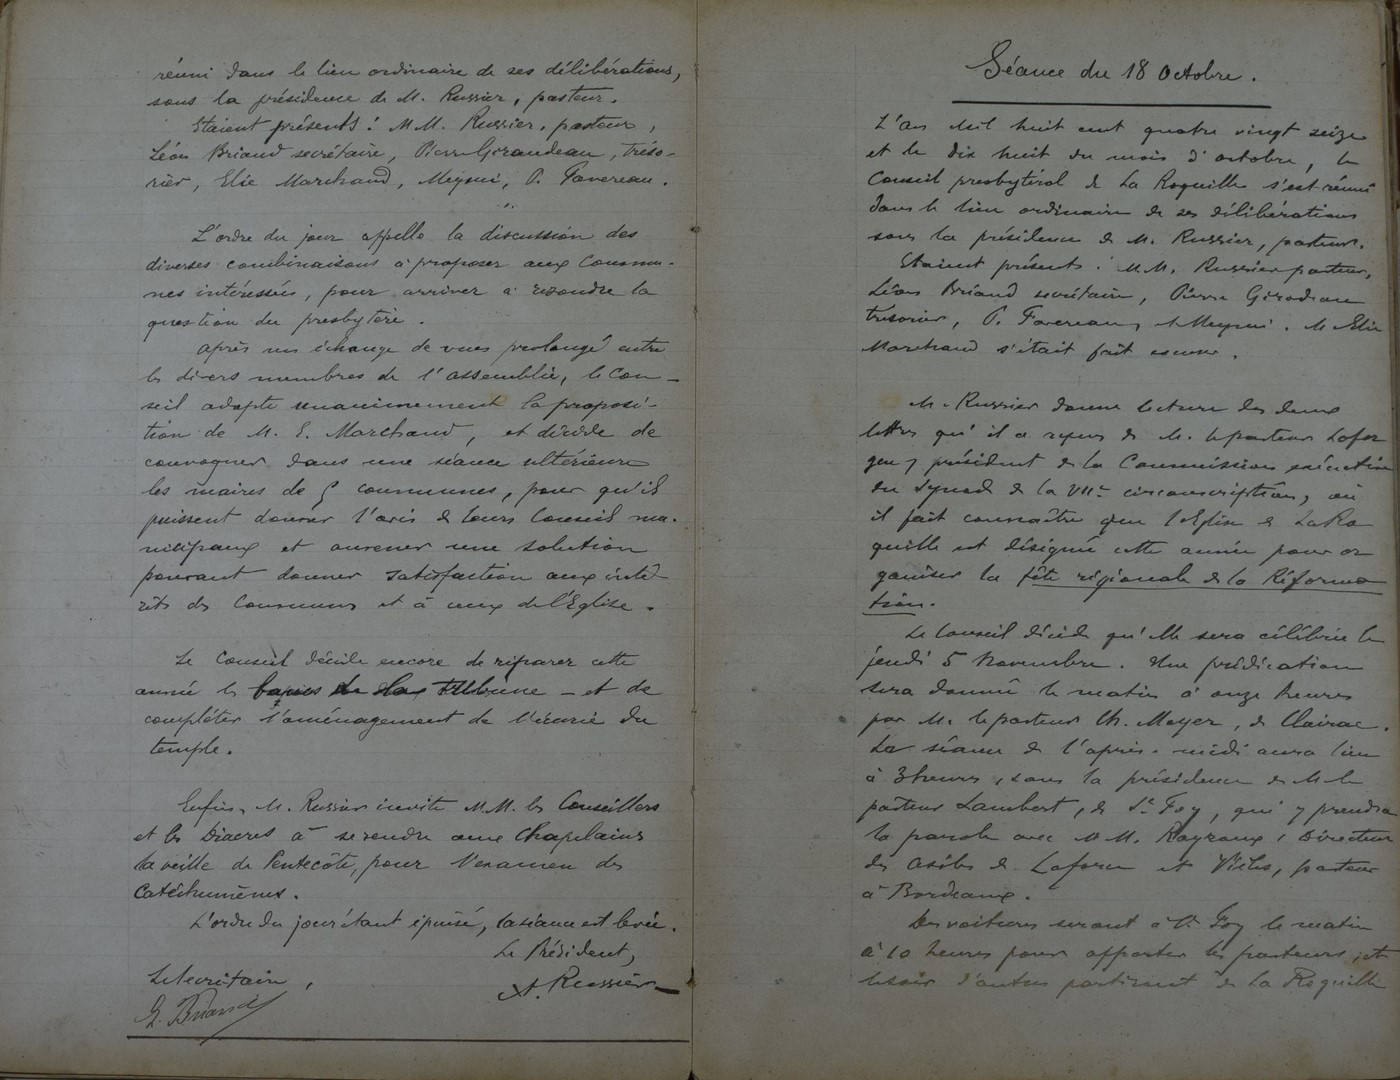 réuni dans le lieu ordinaire de ses délibérations,
sous la présidence de M. Russier, pasteur.
Etaient présents : MM. Russier, pasteur,
Léon Briand secrétaire, Pierre Girandeau, tréso-
rier, Elie Marchand, Meymi, P. Favereau.
L'ordre du jour appelle la discussion des
diverses combinaisons à proposer aux Commu-
nes intéressées, pour arriver à résoudre la
question du presbytère.
Après un échange de vues prolongé entre
les divers membres de l'assemblée, le Con-
seil adopte unanimement la proposi-
tion de M. E. Marchand, et décide de
convoquer dans une séance ultérieure
les maires de 5 communes, pour qu'ils
puissent donner l'avis de leurs Conseils mu-
nicipaux et amener une solution
pouvant donner satisfaction aux inté-
rêts des Communes et à ceux de l'Eglise.
Le Conseil décide encore de réparer cette
année les bancs de la Tribune - et de
compléter l'aménagement de l'écurie du
temple.
Enfin, M. Russier invite MM. les Conseillers
et les Diacres à se rendre aux Chapelains
la veille de Pentecôte, pour l'examen des
Catéchumènes.
L'ordre du jour étant épuisé, la séance est levée.
Le Président,
A. Russier
Le Secrétaire,
L. Briand
Séance du 18 Octobre.
L'an Mil huit cent quatre vingt seize
et le dix huit du mois d'octobre, le
Conseil presbytéral de La Roquille s'est réuni
dans le lieu ordinaire de ses délibérations
sous la présidence de M. Russier, pasteur.
Etaient présents : MM. Russier pasteur,
Léon Briand secrétaire, Pierre Girodeau
trésorier, P. Favereau, et Meymi. M. Elie
Marchand s'était fait excuser.
M. Russier donne lecture des deux
lettres qu'il a reçues de M. le pasteur Lafor
gue, président de la Commission exécutive
du Synode de la VIIe circonscription, où
il fait connaître que l'Eglise de La Ro
quille est désignée cette année pour or
ganiser la fête régionale de la Réforma
tion.
Le Conseil décide qu'elle sera célébrée le
jeudi 5 Novembre. Une prédication
sera donnée le matin à onze heures
par M. le pasteur Ch. Meyer, de Clairac.
La séance de l'après-midi aura lieu
à 3 heures, sous la présidence de M. le
pasteur Lambert, de Ste Foy, qui y prendra
la parole avec MM. Rayroux, Directeur
des Asiles de Laforce et Vièles, pasteur
à Bordeaux.
Des voitures seront à Ste Foy le matin
à 10 heures pour apporter les pasteurs, et
le soir d'autres partiront de La Roquille